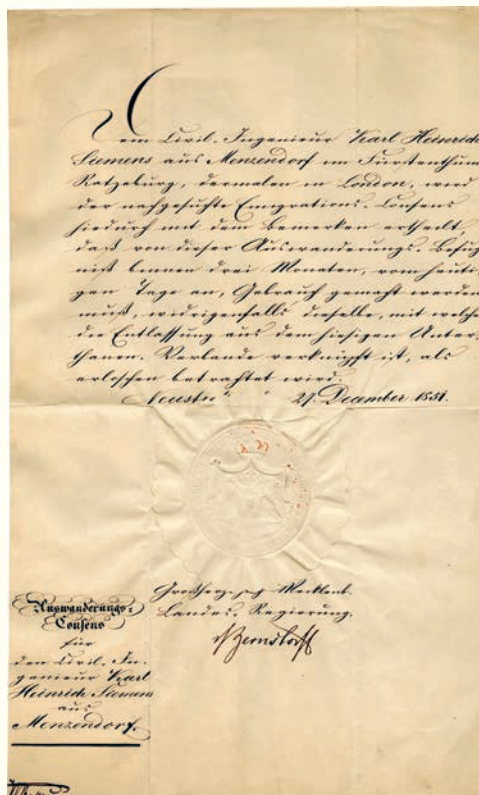 Dem Civil-Ingenieur Karl Heinrich
Siemens aus Menzendorf im Fürstenthum
Ratzeburg, dermalen in London, wird
der nachgesuchte Emigrations-Consens
hiedurch mit dem Bemerken ertheilt,
daß von dieser Auswanderungs-Befug
niß binnen drei Monaten, vom heuti-
gen Tage an, Gebrauch gemacht werden
muß, widrigenfalls dieselbe, mit welcher
die Entlassung aus dem hiesigen Unter-
thanen-Verbande verknüpft ist, als
erloschen betrachtet wird.
Neustr 27. December 1851.
Großherzogl. Mecklenb.
Landes-Regierung.
Bernstorff
Auswanderungs-
Consens
für
den Civil-In-
genieur Karl
Heinrich Siemens
aus
Menzendorf.